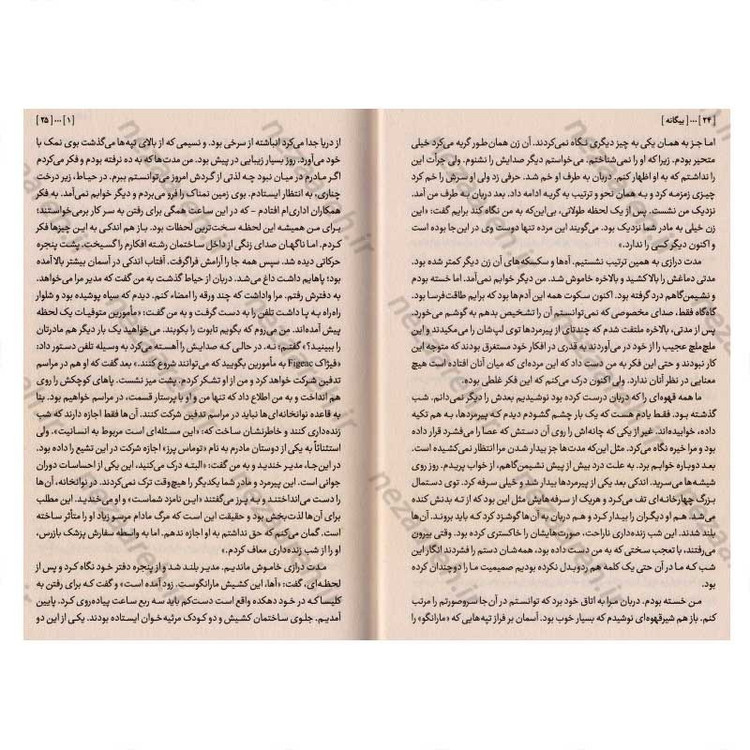 [ ۲۴ ] ... [ بیگانه ]
اما جز به همان یکی به چیز دیگری نگاه نمی‌کردند. آن زن همان‌طور گریه می‌کرد خیلی
متحیر بودم. زیرا که او را نمی‌شناختم. می‌خواستم دیگر صدایش را نشنوم. ولی جرأت این
را نداشتم که به او اظهار کنم. دربان به طرف او خم شد. حرفی زد ولی او سرش را خم کرد
چیزی زمزمه کرد و به همان نحو و ترتیب به گریه ادامه داد. بعد دربان به طرف من آمد.
نزدیک من نشست. پس از یک لحظه طولانی، بی‌این‌که به من نگاه کند برایم گفت: «این
زن خیلی به مادر شما نزدیک بود. می‌گویند این مرده تنها دوست وی در این‌جا بوده است
و اکنون دیگر کسی را ندارد.»
مدت درازی به همین ترتیب نشستیم. آه‌ها و سکسکه‌های آن زن دیگر کمتر شده بود.
مدتی دماغش را بالاکشید و بالاخره خاموش شد. من دیگر خوابم نمی‌آمد. اما خسته بودم
و نشیمن‌گاهم درد گرفته بود. اکنون سکوت همه این آدم‌ها بود که برایم طاقت‌فرسا بود.
گاه‌گاه فقط، صدای مخصوصی که نمی‌توانستم آن را تشخیص بدهم به گوشم می‌خورد.
پس از مدتی، بالاخره ملتفت شدم که چندتای از پیرمردها توی لپ‌شان را می‌مکیدند و این
ملچ‌ملچ عجیب را از خود در می‌آوردند به قدری در افکار خود مستغرق بودند که متوجه این
کار نبودند و حتی این فکر به من دست داد که این مرده‌ای که میان آنان افتاده است هیچ
معنایی در نظر آنان ندارد. ولی اکنون درک می‌کنم که این فکر غلطی بوده.
ما همه قهوه‌ای را که دربان درست کرده بود نوشیدیم بعدش را دیگر نمی‌دانم. شب
گذشته بود. فقط یادم هست که یک بار چشم گشودم دیدم که پیرمردها، به هم تکیه
داده، خوابیده‌اند. غیر از یکی که چانه‌اش را روی آن دستش که عصا را می‌فشرد قرار داده
بود و مرا خیره نگاه می‌کرد. مثل این‌که مدت‌ها جز بیدار شدن مرا انتظار نمی‌کشیده است.
بعد دوباره خوابم برد. به علت درد بیش از پیش نشیمن‌گاهم، از خواب پریدم. روز روی
شیشه‌ها می‌سرید. اندکی بعد یکی از پیرمردها بیدار شد و خیلی سرفه کرد. توی دستمال
بزرگ چهارخانه‌ای تف می‌کرد و هریک از سرفه‌هایش مثل این بود که از ته بدنش کنده
می‌شد. هم او دیگران را بیدار کرد و هم دربان به آن‌ها گوشزد کرد که باید بروند. آن‌ها
بلند شدند. این شب زنده‌داری ناراحت، صورت‌هایشان را خاکستری کرده بود. وقتی بیرون
می‌رفتند، با تعجب سختی که به من دست داده بود، همه‌شان دستم را فشردند انگار این
شب که ما در آن حتی یک کلمه هم ردوبدل نکرده بودیم صمیمیت ما را دوچندان کرده
بود.
من خسته بودم. دربان مرا به اتاق خود برد که توانستم در آن‌جا سروصورتم را مرتب
کنم. باز هم شیرقهوه‌ای نوشیدم که بسیار خوب بود. آسمان بر فراز تپه‌هایی که «مارانگو» را
[ ۱ ] ... [ ۲۵ ]
از دریا جدا می‌کرد انباشته از سرخی بود. و نسیمی که از بالای تپه‌ها می‌گذشت بوی نمک با
خود می‌آورد. روز بسیار زیبایی در پیش بود. من مدت‌ها که به ده نرفته بودم و فکر می‌کردم
اگر مادرم در میان نبود چه لذتی از گردش امروز می‌توانستم ببرم. در حیاط، زیر درخت
چناری، به انتظار ایستادم. بوی زمین نمناک را فرو می‌بردم و دیگر خوابم نمی‌آمد. به فکر
همکاران اداری‌ام افتادم - که در این ساعت همگی برای رفتن به سر کار برمی‌خواستند؛
برای من همیشه این لحظه سخت‌ترین لحظات بود. باز هم اندکی به این چیزها فکر
کردم. اما ناگهان صدای زنگی از داخل ساختمان رشته افکارم را گسیخت. پشت پنجره
حرکاتی دیده شد. سپس همه جا را آرامش فراگرفت. آفتاب اندکی در آسمان بیشتر بالا آمده
بود؛ پاهایم داشت داغ می‌شد. دربان از حیاط گذشت به من گفت که مدیر مرا می‌خواهد.
به دفترش رفتم. مرا واداشت که چند ورقه را امضاء کنم. دیدم که سیاه پوشیده بود و شلوار
راه‌راه به پا داشت تلفن را به دست گرفت و به من گفت: «مأمورین متوفیات یک لحظه
پیش آمده‌اند. من می‌روم که بگویم تابوت را بکوبند. می‌خواهید یک بار دیگر هم مادرتان
را ببینید؟» گفتم: نه. در حالی که صدایش را آهسته می‌کرد به وسیله تلفن دستور داد:
«فیژاک Figeac به مأمورین بگویید که می‌توانند شروع کنند.» بعد گفت که او هم در مراسم
تدفین شرکت خواهد کرد و من از او تشکر کردم. پشت میز نشست. پاهای کوچکش را روی
هم انداخت و به من اطلاع داد که تنها من و او با پرستار قسمت، در مراسم خواهیم بود. بنا
به قاعده نوانخانه‌ای‌ها نباید در مراسم تدفین شرکت کنند. آن‌ها فقط اجازه دارند که شب
زنده‌داری کنند و خاطرنشان ساخت که: «این مسئله‌ای است مربوط به انسانیت». ولی
استثنائاً به یکی از دوستان مادرم به نام «توماس پرز» اجازه شرکت در این تشیع را داده بود.
در این‌جا، مدیر خندید و به من گفت: «البته درک می‌کنید، این یکی از احساسات دوران
جوانی است. این پیرمرد و مادر شما یکدیگر را هیچ‌وقت ترک نمی‌کردند. در نوانخانه، آن‌ها
را دست می‌انداختند و به پرز می‌گفتند «این نامزد شماست» و او می‌خندید. این مطلب
برای آن‌ها لذت‌بخش بود و حقیقت این است که مرگ مادام مرسو زیاد او را متأثر ساخته
است. گمان می‌کنم که حق نداشتم به او اجازه ندهم. اما به واسطه سفارش پزشک بازرس،
او را از شب زنده‌داری معاف کردم.»
مدت درازی خاموش ماندیم. مدیر بلند شد و از پنجره دفتر خود نگاه کرد و پس از
لحظه‌ای، گفت: «آها، این کشیش مارانگوست. زود آمده است» و گفت که برای رفتن به
کلیسا که در خود دهکده واقع است دست‌کم باید سه ربع ساعت پیاده‌روی کرد. پایین
آمدیم. جلوی ساختمان کشیش و دو کودک مرثیه‌خوان ایستاده بودند. یکی از این دو